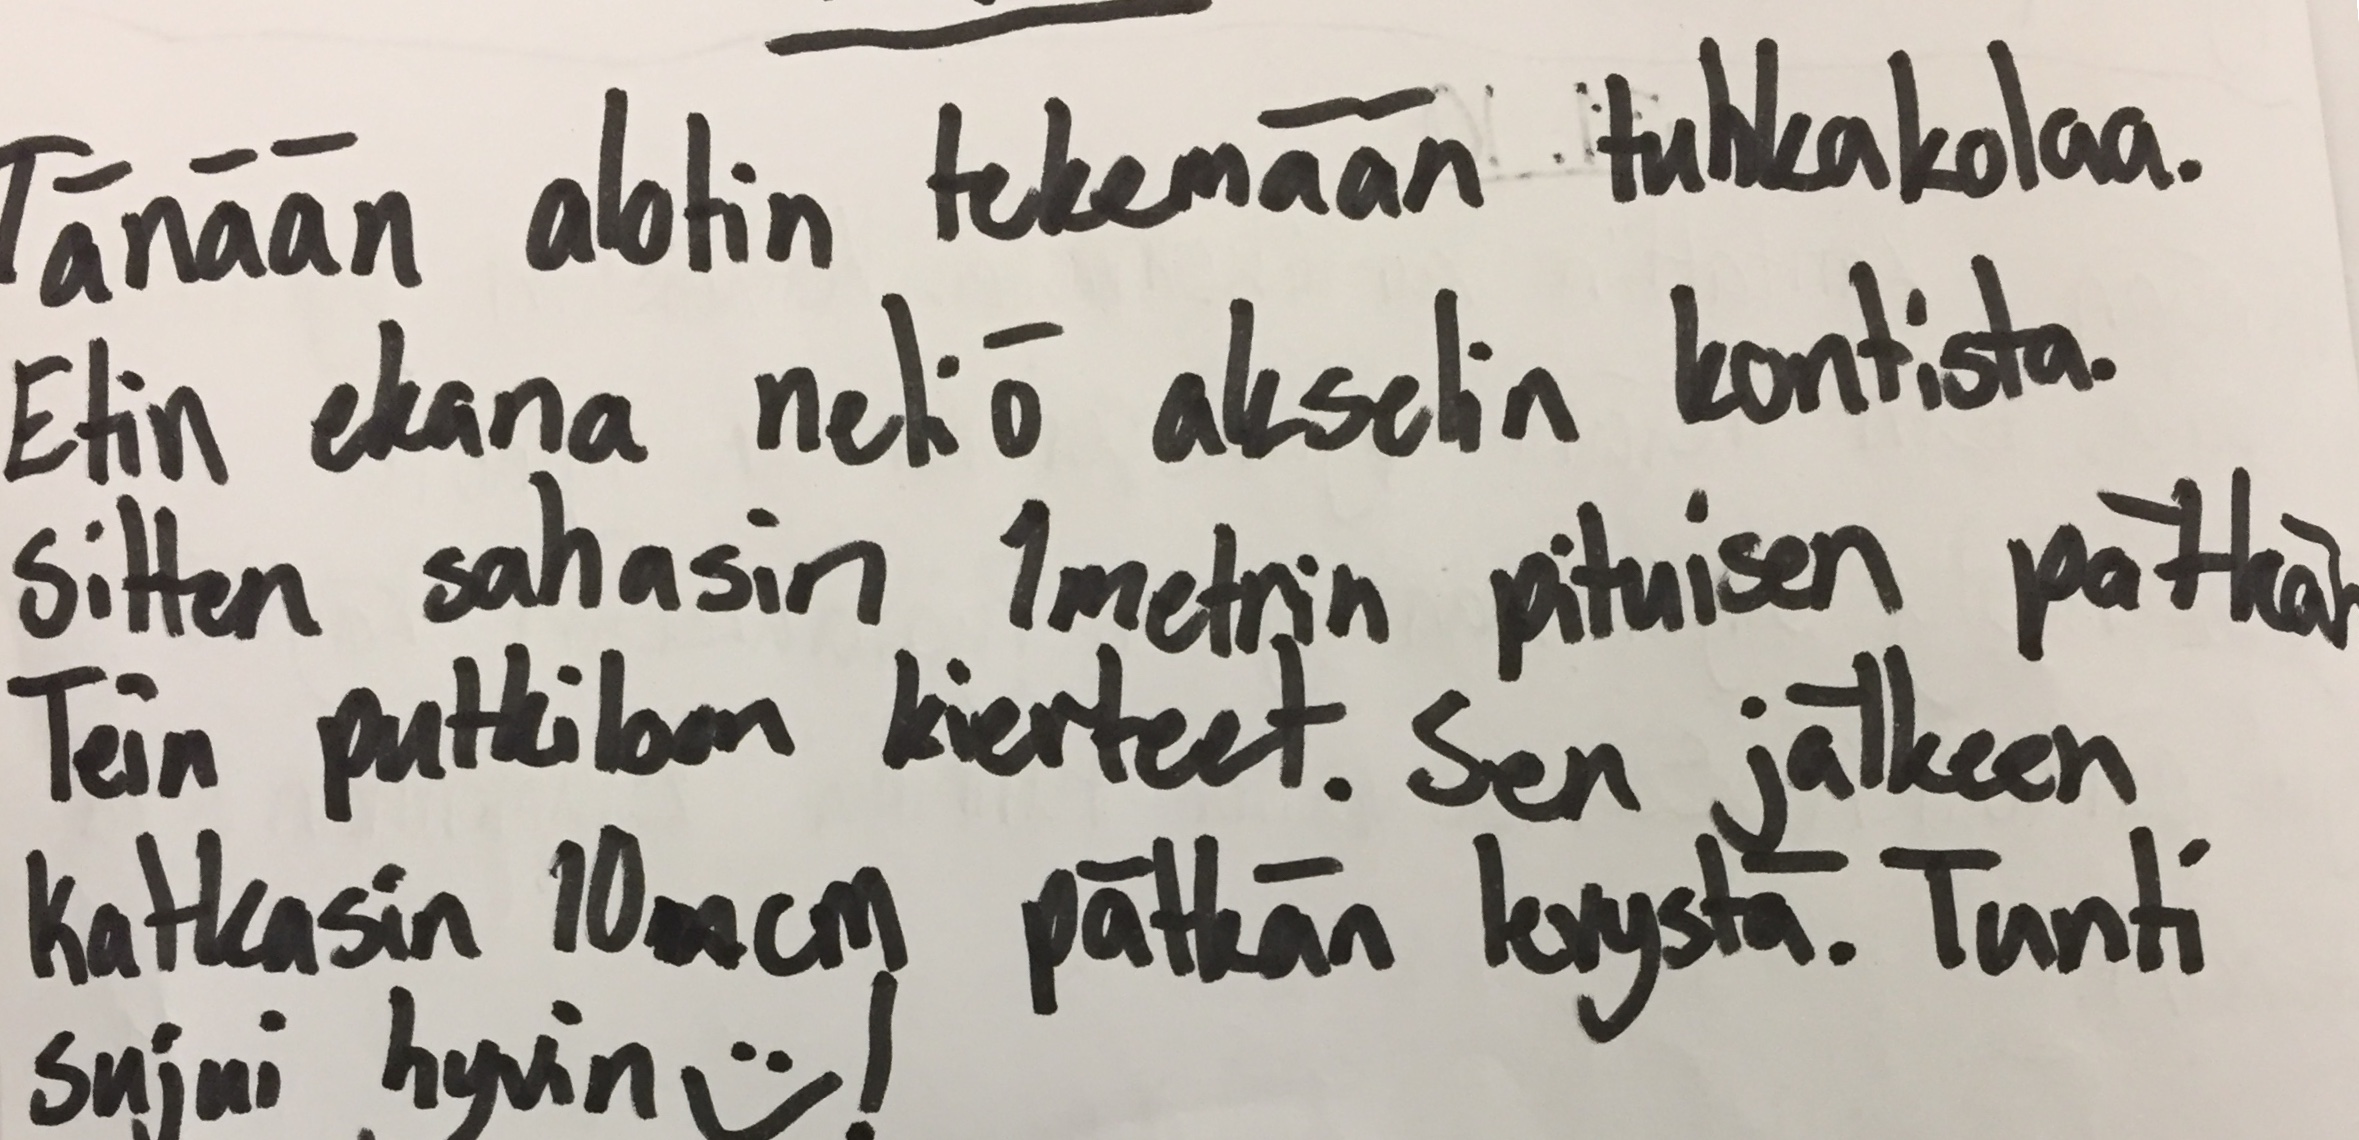 Tänään alotin tekemään tuhkakolaa.
Etin ekana neliö akselin kontista.
Sitten sahasin 1metrin pituisen pätkän
Tein putkiloon kierteet. Sen jälkeen
Katkasin 10 cm pätkän levystä. Tunti
sujui hyvin !